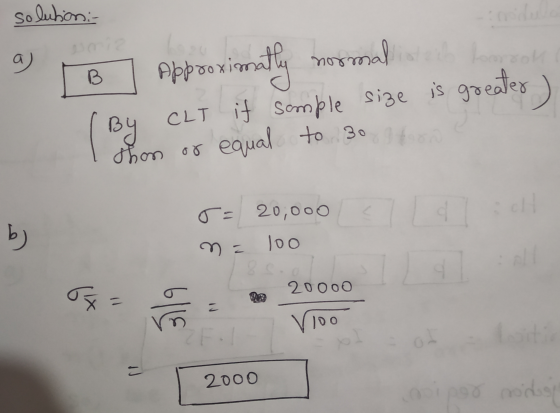 Solution:-
a) B Approximatly normal
(By CLT if sample size is greater
than or equal to 30)
b) σ = 20,000
n = 100
σx̄ = σ/√n = 20000/√100
= 2000